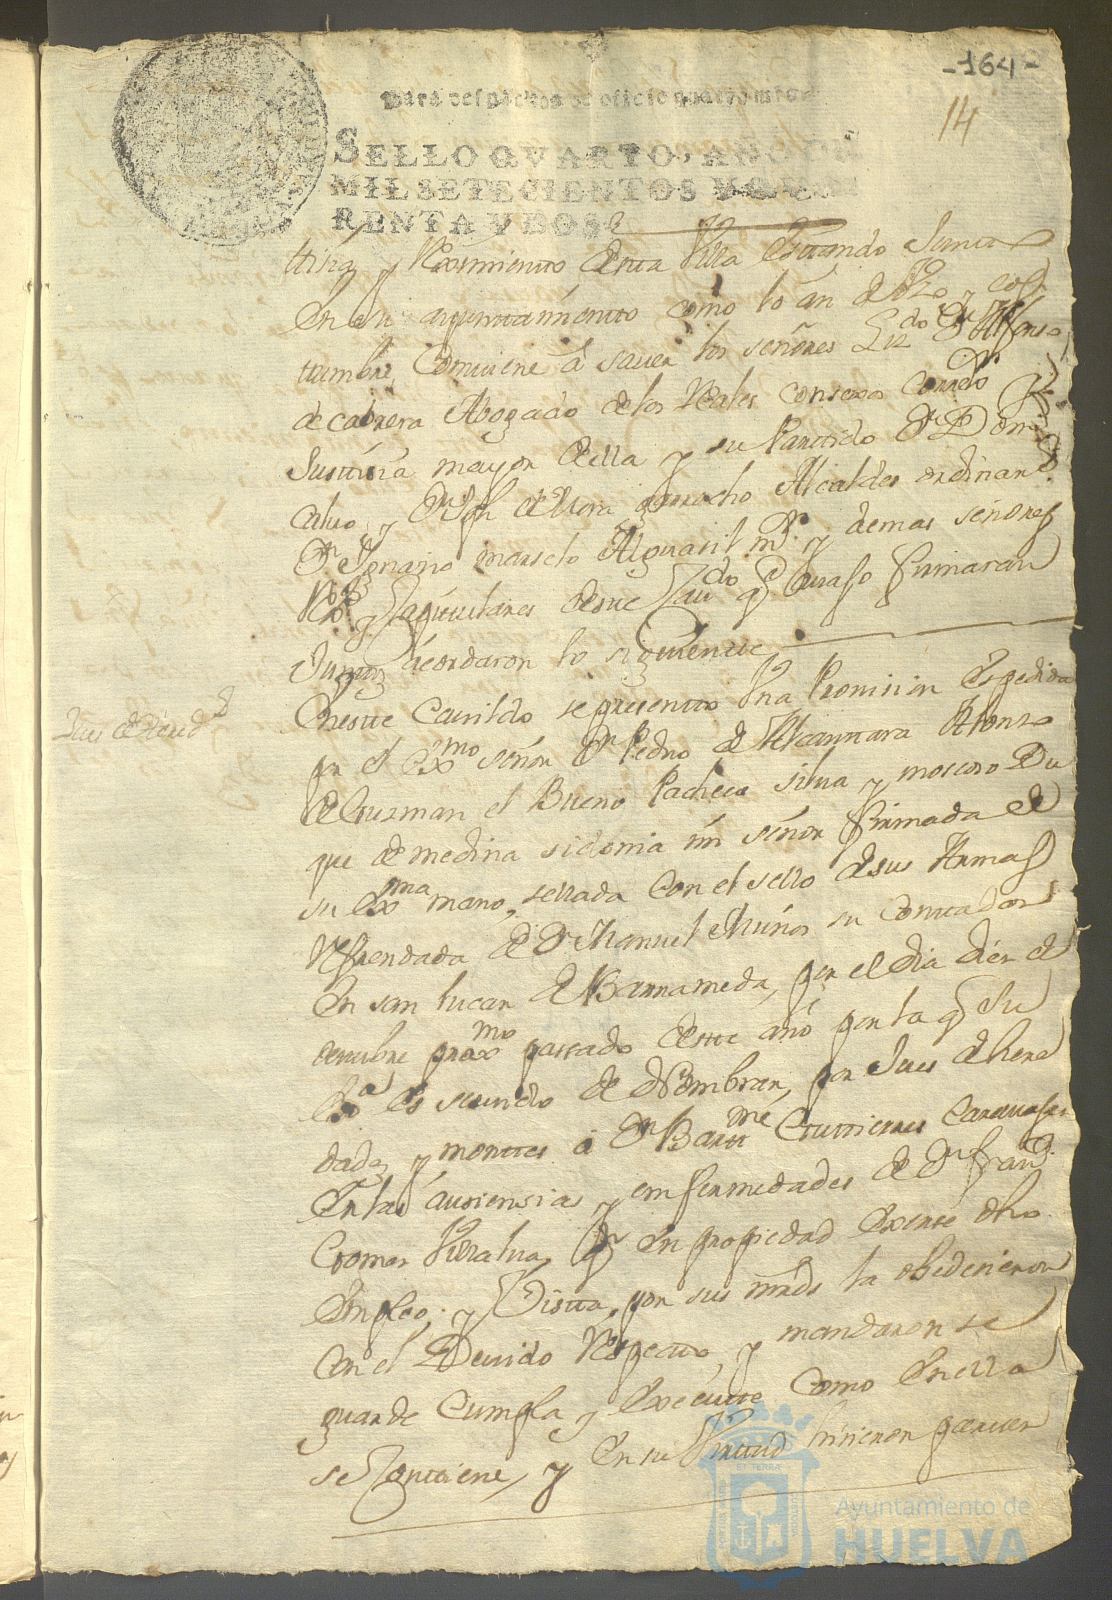 -164-
14
Para despachos de oficio quatro mrs.
SELLO QVARTO, AÑO DE
MIL SETECIENTOS Y QVA
RENTA Y DOS
tizia y Reximiento desta Villa estando Juntos
en su ayuntamiento como lo an de Vzo y cos
tumbre, Combiene â saver los señores Lizdo Dn Alfonso
de cabrera Abogado de los Reales consexos Corredor
Justizia mayor della y su Partido Dn
calvo, y Dn Alcaldes ordinarios
Dn Ignazio marselo Alguasil mr. y demas señores
Rexs y Capitulares deste Caudo q Avaxo firmaran
Juntos acordaron lo siguiente
Juez de hered
Eneste Cavildo se presento Vna Provision Espedida
por el Exmo señor Dn Pedro de Alcantara Alonso
de Guzman el Bueno Pacheco silva y moscoso Du
que de medina sidonia mi señor firmada de
su Exma mano, sellada Con el sello de sus Armas
Refrendada de Dn Manuel Muños su Contador
En san lucar de Barrameda, por el dia diez de
octubre proxmo passado deste año por la q Su
Exa es servido de Nombrar, por Jues de here
dades y montes â Dn Barme Gutierres
En las ausensias y emfermedades de Dn
Gomes Villalva, q En propiedad Exerse dho
Empleo. y Vista por sus mrds la obedecieron
Con el Devido Respecto, y mandaron se
guarde Cumpla y Execute Como Enella
se Contiene, y En su Virtud hizieron parecer
Ayuntamiento de
HUELVA